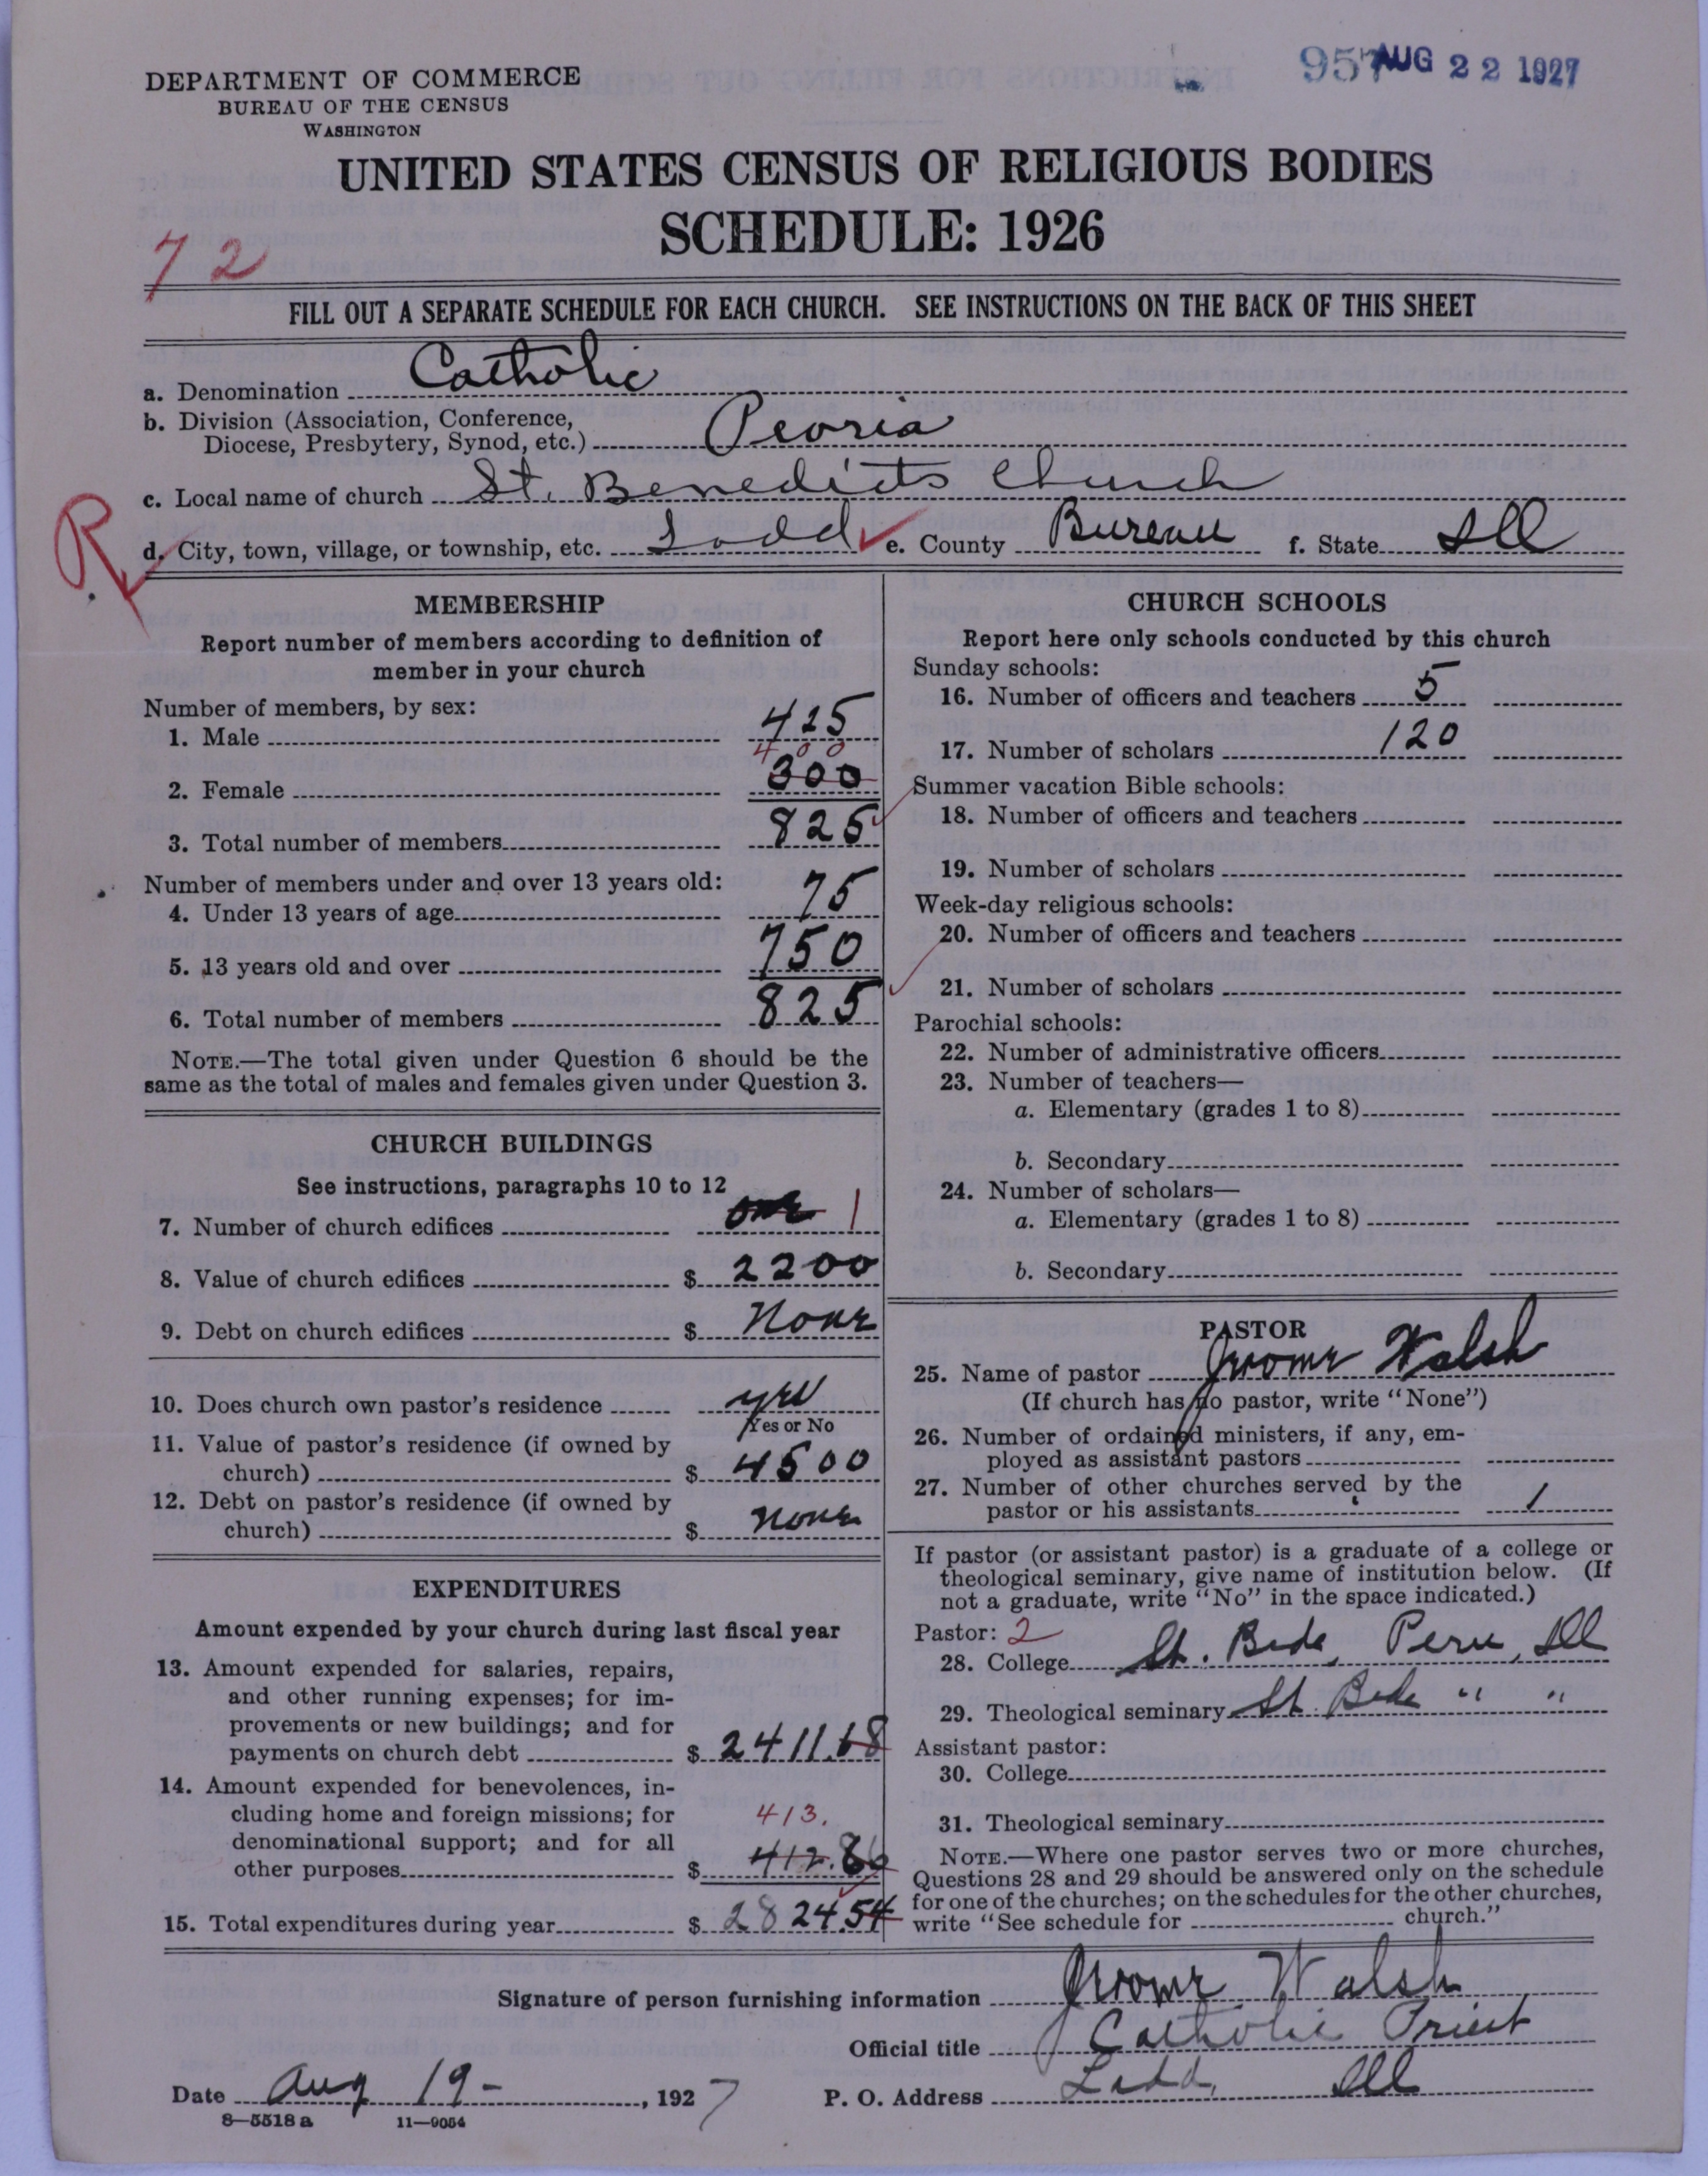 957 AUG 22 1927
DEPARTMENT OF COMMERCE
BUREAU OF THE CENSUS
WASHINGTON
UNITED STATES CENSUS OF RELIGIOUS BODIES
SCHEDULE: 1926
72
FILL OUT A SEPARATE SCHEDULE FOR EACH CHURCH. SEE INSTRUCTIONS ON THE BACK OF THIS SHEET
a. Denomination Catholic
b. Division (Association, Conference,
Diocese, Presbytery, Synod, etc.) Peoria
c. Local name of church St. Benedicts Church
R
d. City, town, village, or township, etc. Ladd e. County Bureau f. State Ill
MEMBERSHIP
Report number of members according to definition of
member in your church
Number of members, by sex:
1. Male 425
400
2. Female 300
3. Total number of members 825
Number of members under and over 13 years old:
4. Under 13 years of age 75
5. 13 years old and over 750
6. Total number of members 825
NOTE.—The total given under Question 6 should be the
same as the total of males and females given under Question 3.
CHURCH BUILDINGS
See instructions, paragraphs 10 to 12
7. Number of church edifices one 1
8. Value of church edifices $ 2200
9. Debt on church edifices $ None
10. Does church own pastor's residence yes
Yes or No
11. Value of pastor's residence (if owned by
church) $ 4500
12. Debt on pastor's residence (if owned by
church) $ none
EXPENDITURES
Amount expended by your church during last fiscal year
13. Amount expended for salaries, repairs,
and other running expenses; for im-
provements or new buildings; and for
payments on church debt $ 2411.68
14. Amount expended for benevolences, in-
cluding home and foreign missions; for 413.
denominational support; and for all
other purposes $ 412.86
15. Total expenditures during year $ 2824.54
CHURCH SCHOOLS
Report here only schools conducted by this church
Sunday schools:
16. Number of officers and teachers 5
17. Number of scholars 120
Summer vacation Bible schools:
18. Number of officers and teachers
19. Number of scholars
Week-day religious schools:
20. Number of officers and teachers
21. Number of scholars
Parochial schools:
22. Number of administrative officers
23. Number of teachers—
a. Elementary (grades 1 to 8)
b. Secondary
24. Number of scholars—
a. Elementary (grades 1 to 8)
b. Secondary
PASTOR
25. Name of pastor Jerome Walsh
(If church has no pastor, write "None")
26. Number of ordained ministers, if any, em-
ployed as assistant pastors
27. Number of other churches served by the
pastor or his assistants 1
If pastor (or assistant pastor) is a graduate of a college or
theological seminary, give name of institution below. (If
not a graduate, write "No" in the space indicated.)
Pastor: 2
28. College St. Bede, Peru, Ill
29. Theological seminary St Bede " "
Assistant pastor:
30. College
31. Theological seminary
NOTE.—Where one pastor serves two or more churches,
Questions 28 and 29 should be answered only on the schedule
for one of the churches; on the schedules for the other churches,
write "See schedule for church."
Signature of person furnishing information Jerome Walsh
Official title Catholic Priest
Date Aug 19-, 1927 P. O. Address Ladd, Ill
8—5518 a 11—9054